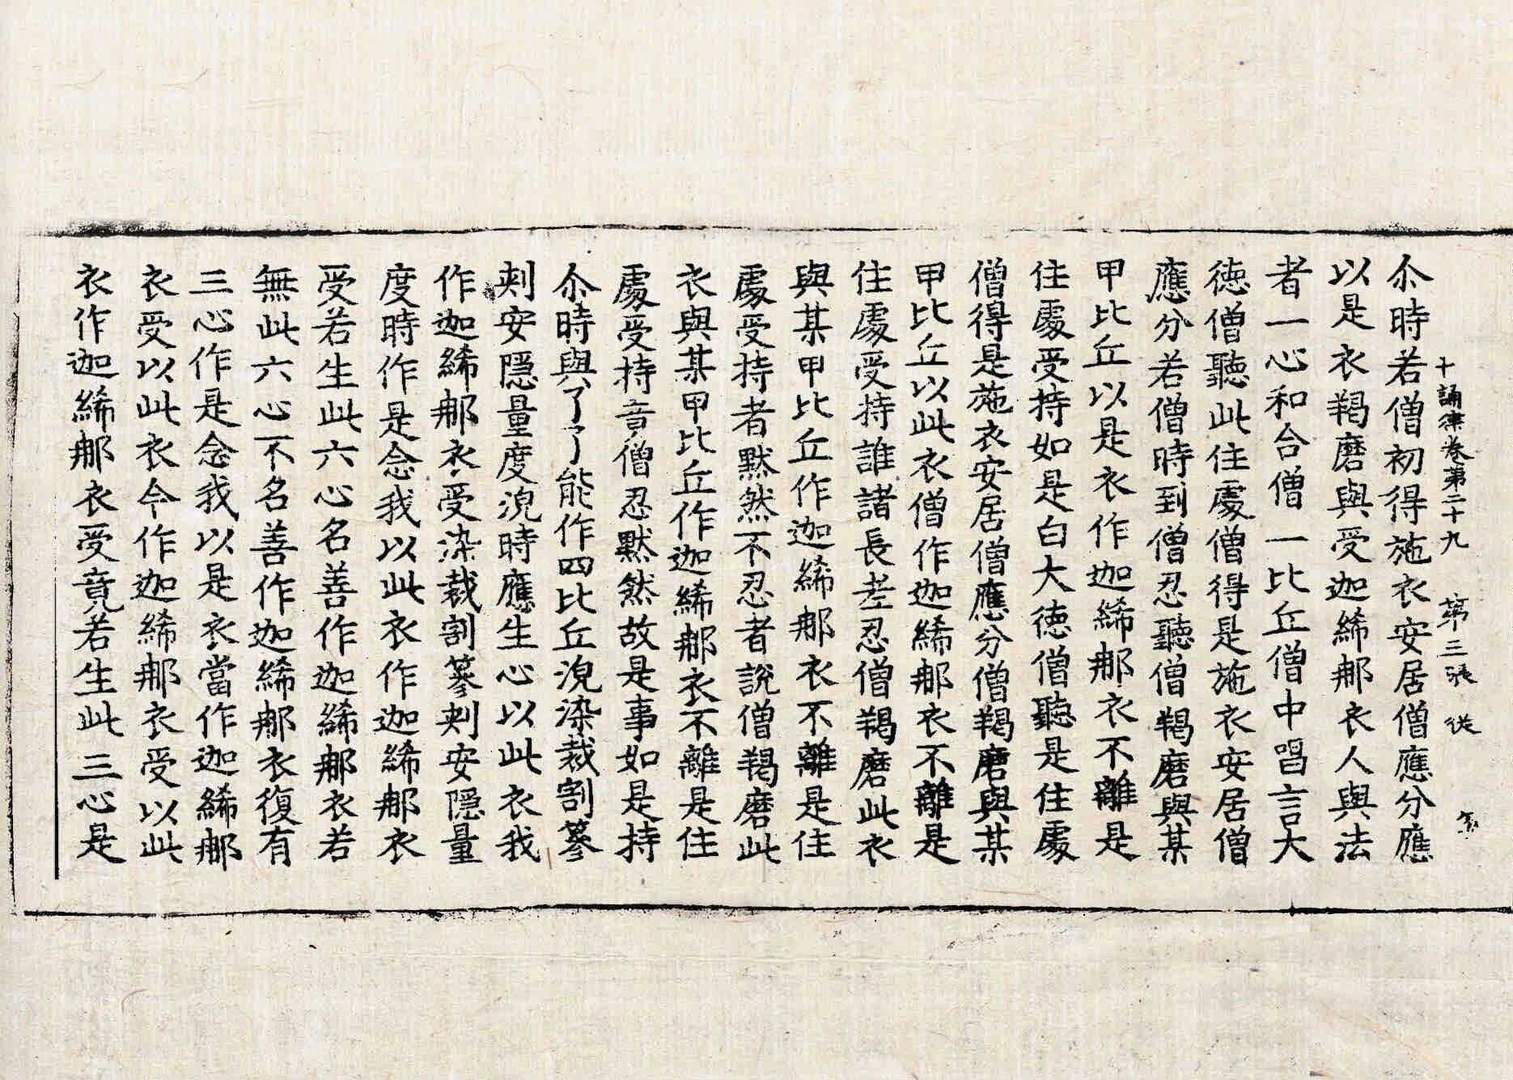 尒時若僧初得施衣安居僧應分應
十誦律卷第二十九 第三張 從
以是衣羯磨與受迦絺那衣人與法
者一心和合僧一比丘僧中唱言大
徳僧聽此住處僧得是施衣安居僧
應分若僧時到僧忍聽僧羯磨與某
甲比丘以是衣作迦絺那衣不離是
住處受持如是白大徳僧聽是住處
僧得是施衣安居僧應分僧羯磨與某
甲比丘以此衣僧作迦絺那衣不離是
住處受持誰諸長老忍僧羯磨此衣
與某甲比丘作迦絺那衣不離是住
處受持者黙然不忍者說僧羯磨此
衣與某甲比丘作迦絺那衣不離是住
處受持竟僧忍黙然故是事如是持
尒時與了了能作四比丘浣染裁割篸
刾安隱量度浣時應生心以此衣我
作迦絺那衣受染裁割篸刾安隱量
度時作是念我以此衣作迦絺那衣
受若生此六心名善作迦絺那衣若
無此六心不名善作迦絺那衣復有
三心作是念我以是衣當作迦絺那
衣受以此衣今作迦絺那衣受以此
衣作迦絺那衣受竟若生此三心是